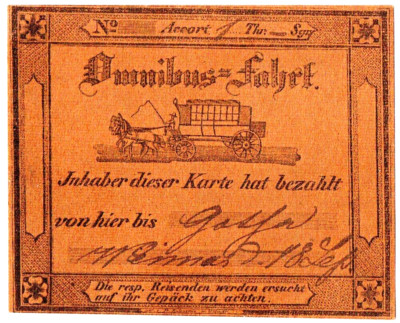 No Accort Thr. Sgr.
Omnibus=Fahrt.
Inhaber dieser Karte hat bezahlt
von hier bis Gotha
Weimar d. 18 Sep
Die resp. Reisenden werden ersucht
auf ihr Gepäck zu achten.